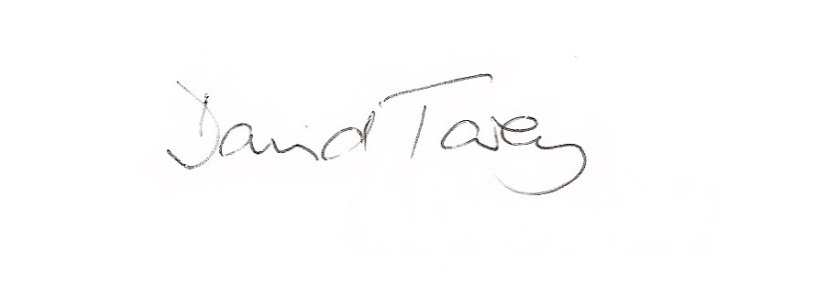 David Tavey